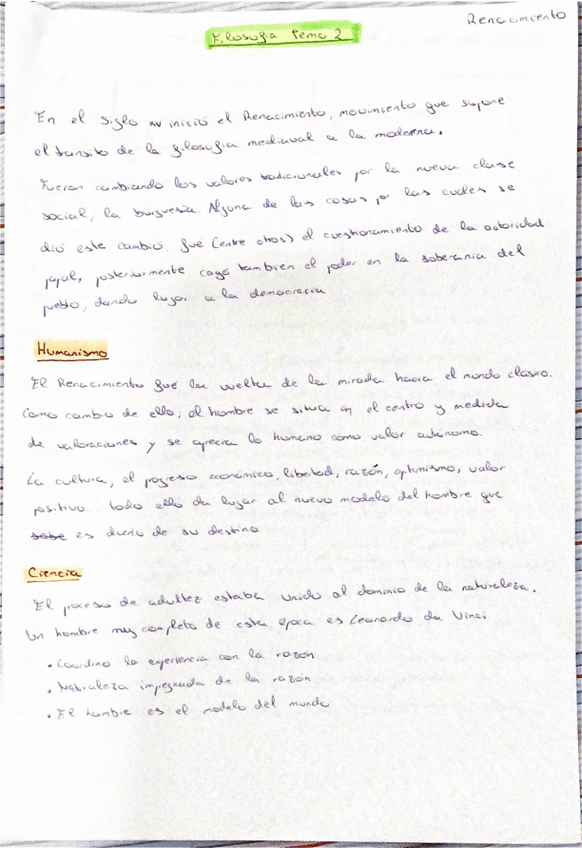 Renacimiento
Filosofia tema 2
En el siglo XV inició el Renacimiento, movimiento que supone
el transito de la filosofia medieval a la moderna.
Fueron cambiando los valores tradicionales por la nueva clase
social, la burguesia. Alguna de las cosas por las cuales se
dió este cambio, fue (entre otros) el cuestionamiento de la autoridad
papal, posteriormente cayó tambien el poder en la soberania del
pueblo, dando lugar a la democracia
Humanismo
El Renacimiento fué la vuelta de la mirada hacia el mundo clasico.
Como cambio de ello, el hombre se situa en el centro y medida
de valoraciones y se aprecia lo humano como valor autónomo.
La cultura, el progreso económico, libertad, razón, optimismo, valor
positivo... todo ello da lugar al nuevo modelo del hombre que
sabe es dueño de su destino
Ciencia
El proceso de adultez estaba unido al dominio de la naturaleza.
Un hombre muy completo de esta epoca es Leonardo da Vinci
• Coordino la experiencia con la razón
• Naturaleza impregnada de la razón
• El hombre es el modelo del mundo